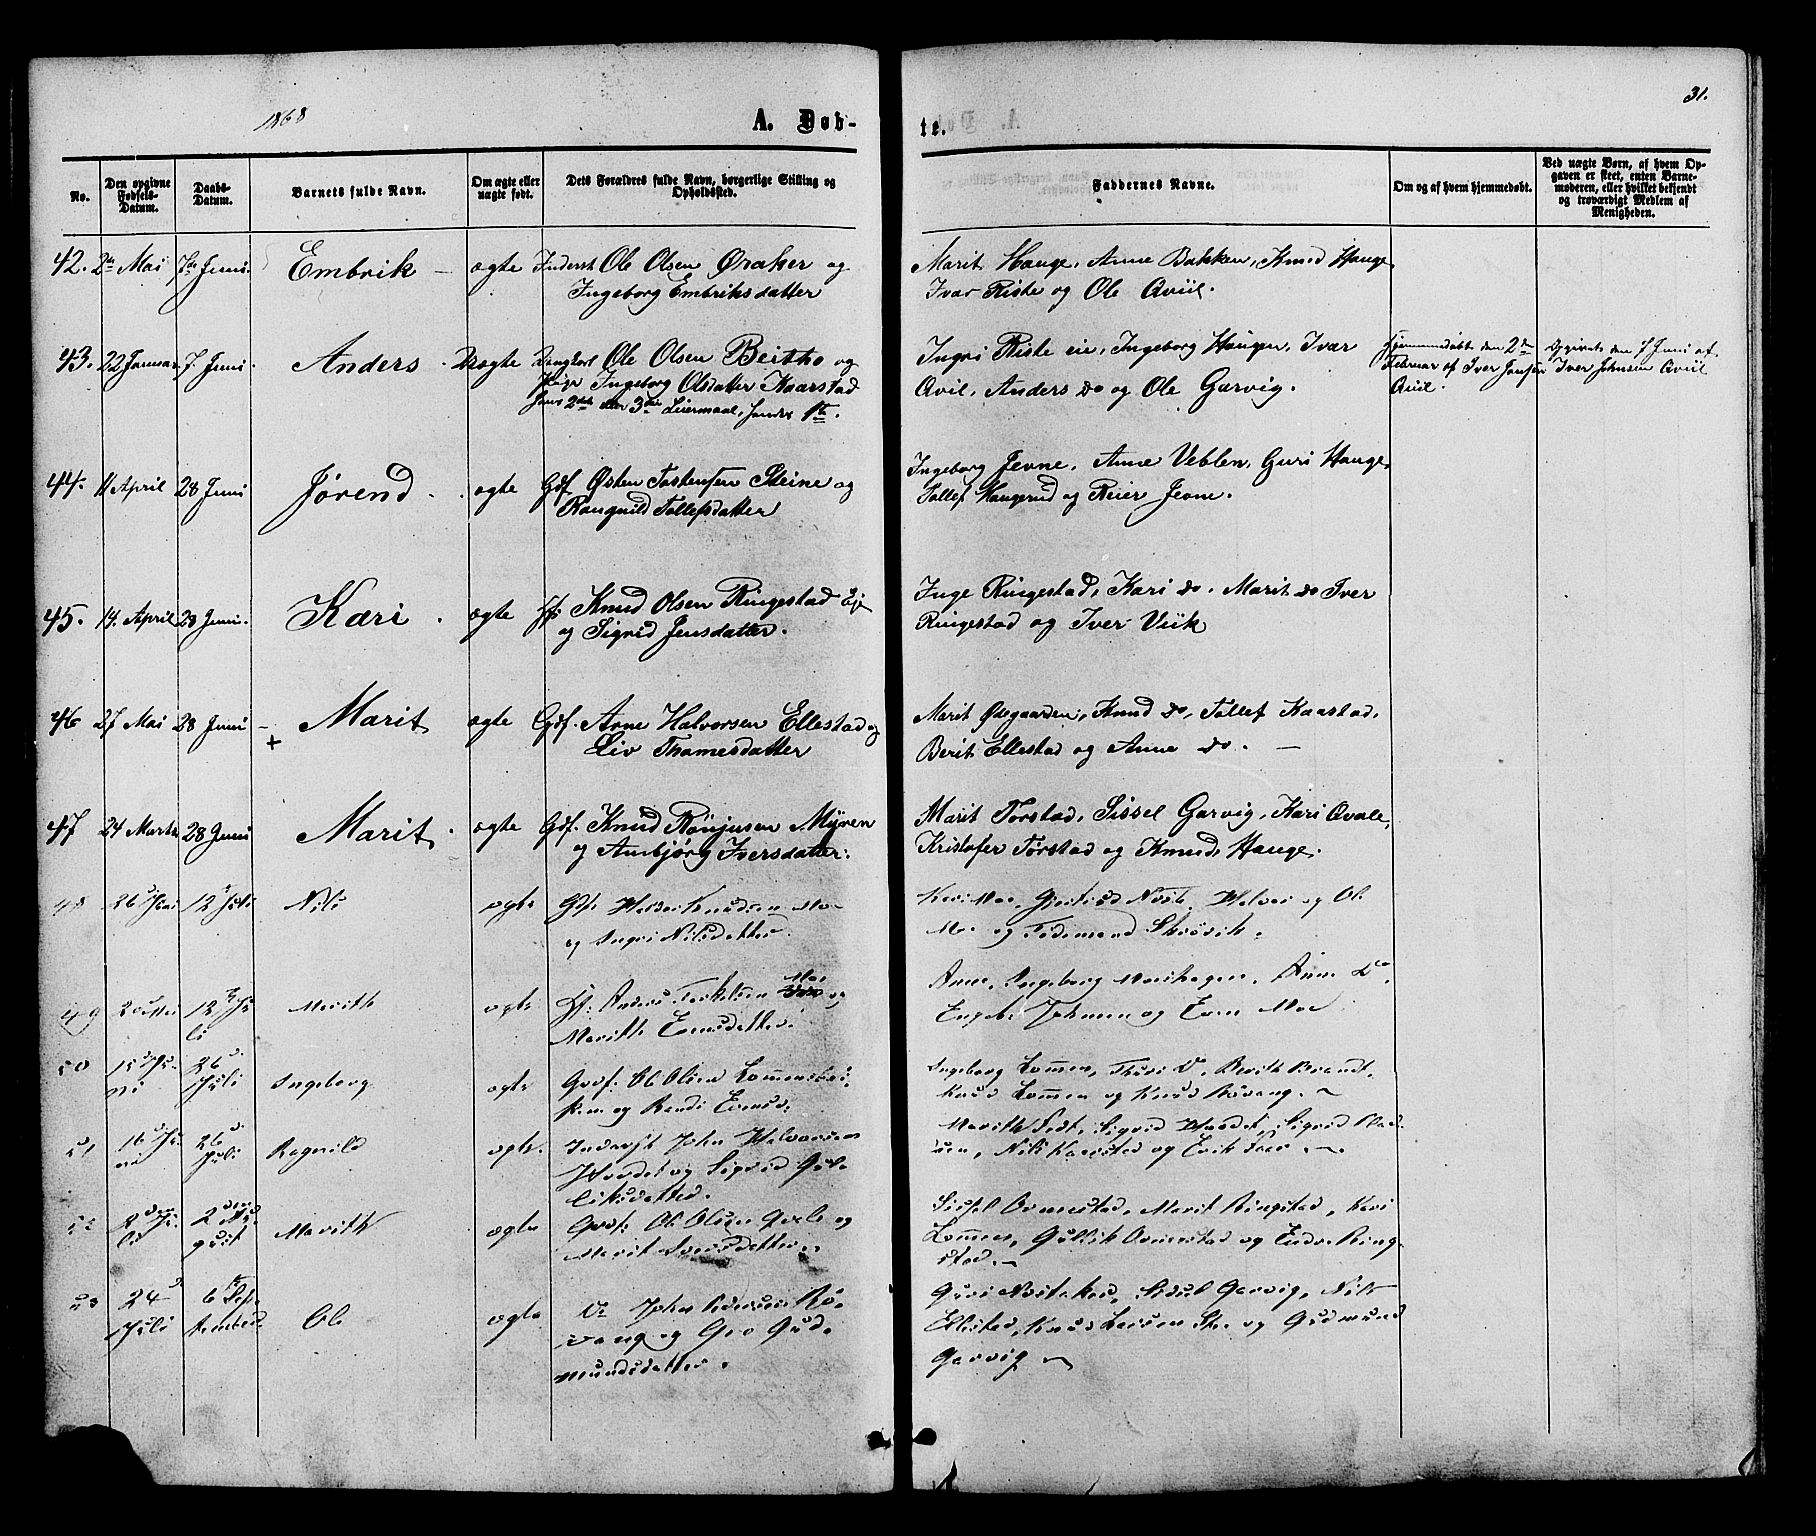 1868
A. Døb-
te.
31.
No.
Den opgivne Fødsels-Datum.
Daabs-Datum.
Barnets fulde Navn.
Om ægte eller uægte født.
Dets Forældres fulde Navn, borgerlige Stilling og Opholdssted.
Faddernes Navne.
Om og af hvem hjemmedøbt.
Ved uægte Børn, af hvem Opgaven er skeet, enten Barnemoderen, eller hvilket bekjendt og troværdigt Medlem af Menigheden.
42. 2de Mai 7de Juni. Embrik ægte Inderst Ole Olsen Øraker og
Ingeborg Embriksdatter
Marit Hauge, Anne Bakken, Knud Hauge
Ivar Riste og Ole Qviil.
43. 22 Januar 7. Juni. Anders. Uægte Ungkarl Ole Olsen Beitho og
Pige Ingeborg Olsdatter Kaarstad
hans 2det eller 3die Leiermaal, hendes 1te.
Ingri Riste eie, Ingeborg Haugen, Ivar
Qvil, Anders do og Ole Garvig.
Hjemmedøbt den 2den
Februar af Iver Jensen
Qviil.
Opgivet den 7 Juni af
Iver Johnsen Qviil
44. 11 April 28 Juni Jørend. ægte Gdf Østen Tostensen Steine og
Rangnild Tollefsdatter
Ingeborg Jevne, Anne Veblen, Guri Hauge,
Tollef Haugerud og Reier Jevne.
45. 14. April 28 Juni. Kari. ægte Hf: Knud Olsen Ringestad Eje
og Sigrid Jensdatter.
Inge Ringestad, Kari do. Marit do Iver
Ringestad og Iver Viik
46 27 Mai 28 Juni + Marit ægte Gdf. Arne Halvorsen Ellestad og
Liv Thomesdatter
Marit Ødegaarden, Knud do, Tollef Kaastad,
Berit Ellestad og Anne do.
47 24 Marts 28 Juni Marit. ægte Gdf. Knud Rønjusen Myren
og Ambjørg Iversdatter.
Marit Torstad, Sissel Garvig, Kari Qvale,
Kristofer Torstad og Knud Hauge.
48 26 Juni 12 Juli Nils ægte Gdf: Halvor Knudsen Moe
og Ingri Nilsdatter.
Kari Moe, Halvor og Ole
Moe og
49 12 Ju-
li Marith ægte Hf: Anders Torkelsen Moe og
Marith Evensdatter.
Anne, Ingeborg Do,
Johnsen og Even Moe
50 15 Ju-
ni 26
Juli Ingeborg. ægte Grdf: Ole Olsen Lommenbak-
ken og Randi Evensd.
Ingeborg Lomen, Thuri Do, Berith Brandt,
Knud Lomen og Knud Røvang.
51 16 Ju-
ni 26
Juli Ragnild ægte. John Halvorsen
og Sigrid Gul-
liksdatter.
Marith Sigrid Sigrid
Nils Kaarstad og Erik
52 2den Ju-
li 2den Au-
gust Marith ægte Grdf: Ole Olsen Qvale og
Marit Iversdatter.
Sissel Ormestad, Marit Ringstad, Kari
Lommen, Gullik Ormestad og Endre Ring-
stad.
53 24
Juli 6te Sep-
tember Ole ægte Do John Pedersen Rø-
vang og Gro Gud-
mundsdatter.
Guri Sissel Garvig, Nils
Ellestad, Knud Larsen og Gudmund
Garvig